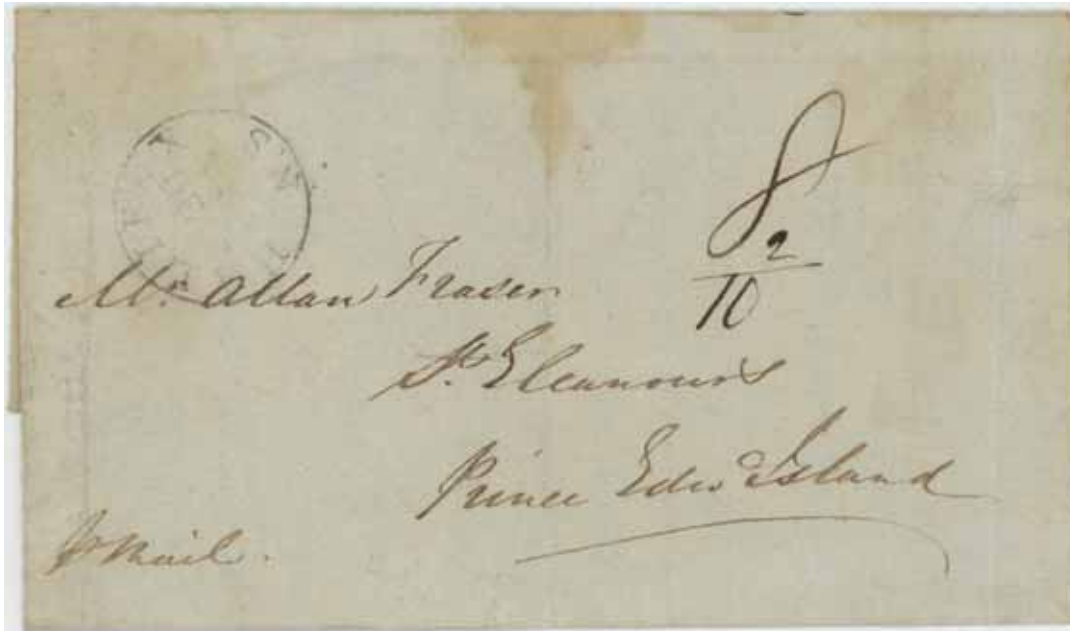 8
2
10
Mr. Allan Fraser
St. Eleanours
Prince Edwd Island
p Mail.